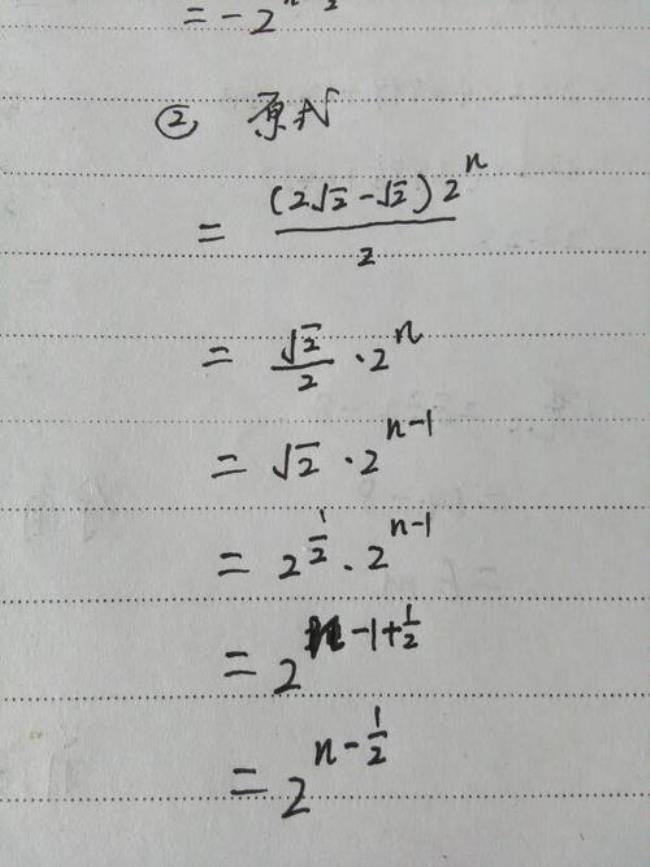 = -2^{n-2}
② 原式
= \frac{(2\sqrt{2}-\sqrt{2})2^{n}}{2}
= \frac{\sqrt{2}}{2} \cdot 2^{n}
= \sqrt{2} \cdot 2^{n-1}
= 2^{\frac{1}{2}} \cdot 2^{n-1}
= 2^{n-1+\frac{1}{2}}
= 2^{n-\frac{1}{2}}